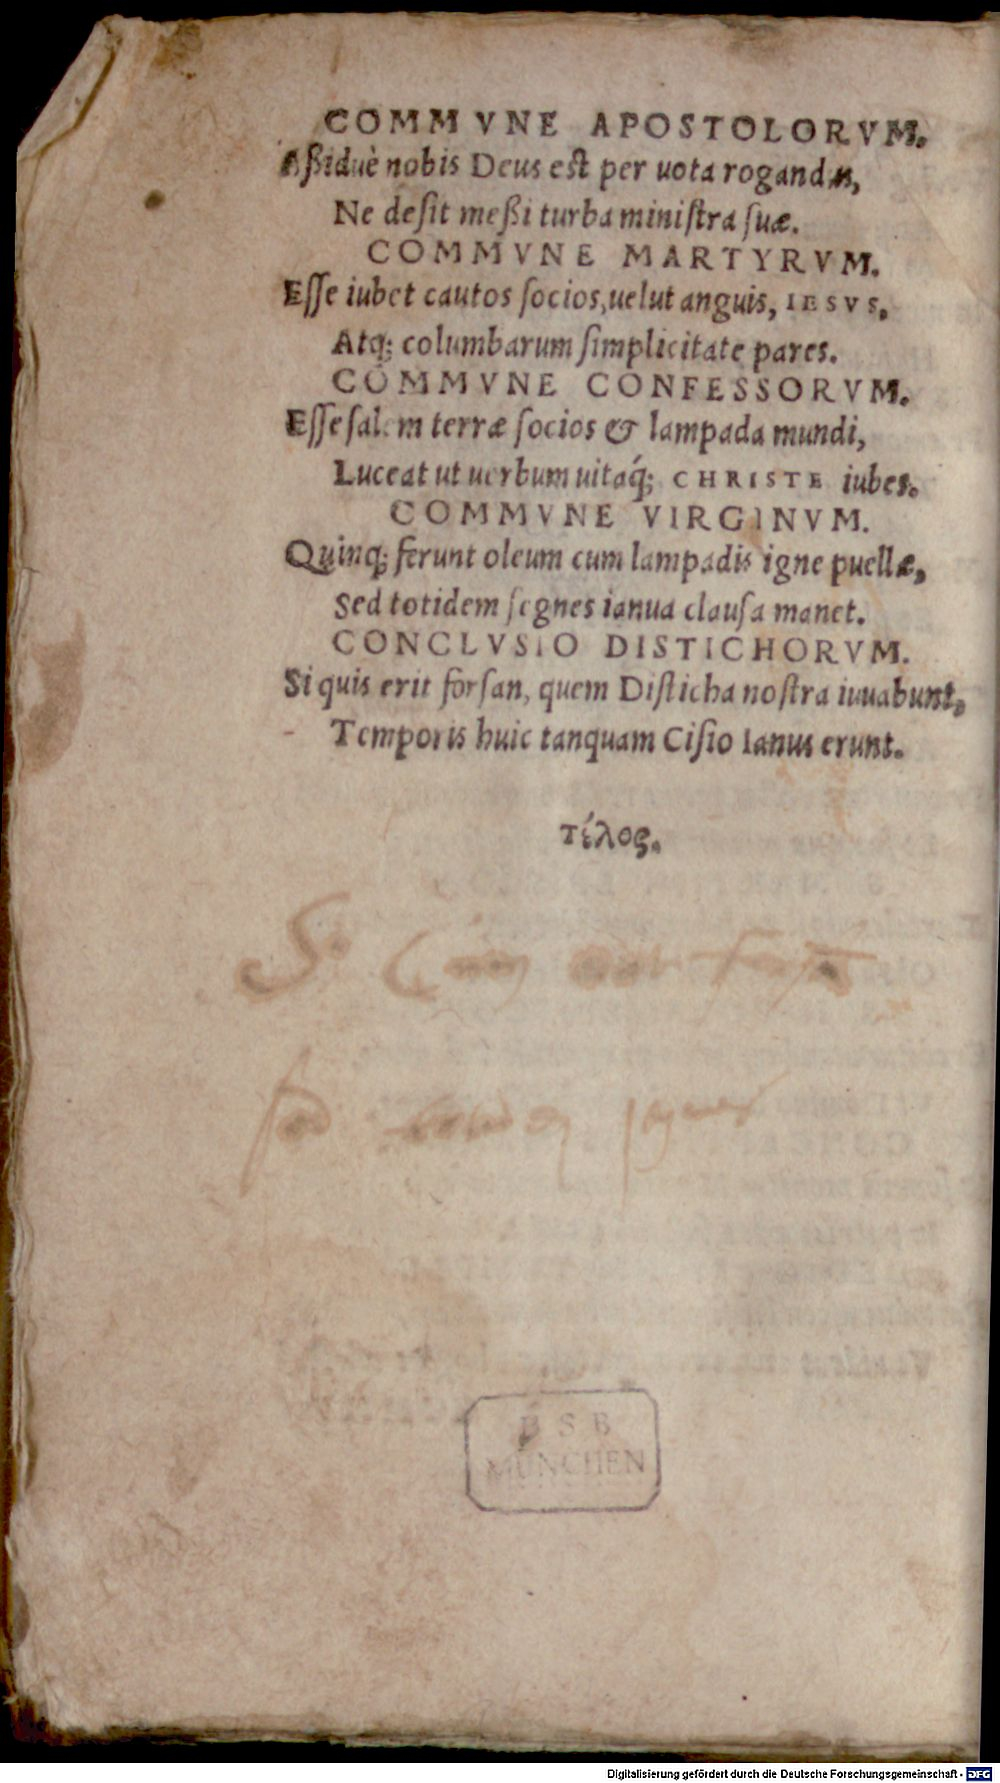 COMMVNE APOSTOLORVM.
Aßiduè nobis Deus est per uota rogandus,
Ne desit meßi turba ministra suæ.
COMMVNE MARTYRVM.
Esse iubet cautos socios, uelut anguis, IESVS,
Atq; columbarum simplicitate pares.
COMMVNE CONFESSORVM.
Esse salem terræ socios & lampada mundi,
Luceat ut uerbum uitáq; CHRISTE iubes.
COMMVNE VIRGINVM.
Quinq; ferunt oleum cum lampadis igne puellæ,
Sed totidem segnes ianua clausa manet.
CONCLVSIO DISTICHORVM.
Si quis erit forsan, quem Disticha nostra iuuabunt,
Temporis huic tanquam Cisio Ianus erunt.
τέλος.
BSB
MÜNCHEN
Digitalisierung gefördert durch die Deutsche Forschungsgemeinschaft - DFG